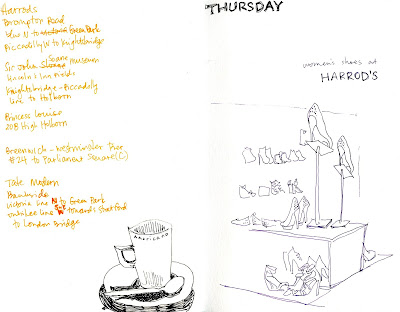 Harrods
Brompton Road
blue N to Victoria Green Park
Piccadilly W to Knightsbridge
Sir John Soane museum
Lincoln's Inn Fields
Knightsbridge - Piccadilly
line to Holborn
Princess Louise
208 High Holborn
Greenwich - Westminster Pier
#24 to Parliament Square (C)
Tate Modern
Bankside
Victoria line N to Green Park
Jubilee line towards Stratford
to London Bridge
THURSDAY
women's shoes at
HARROD'S